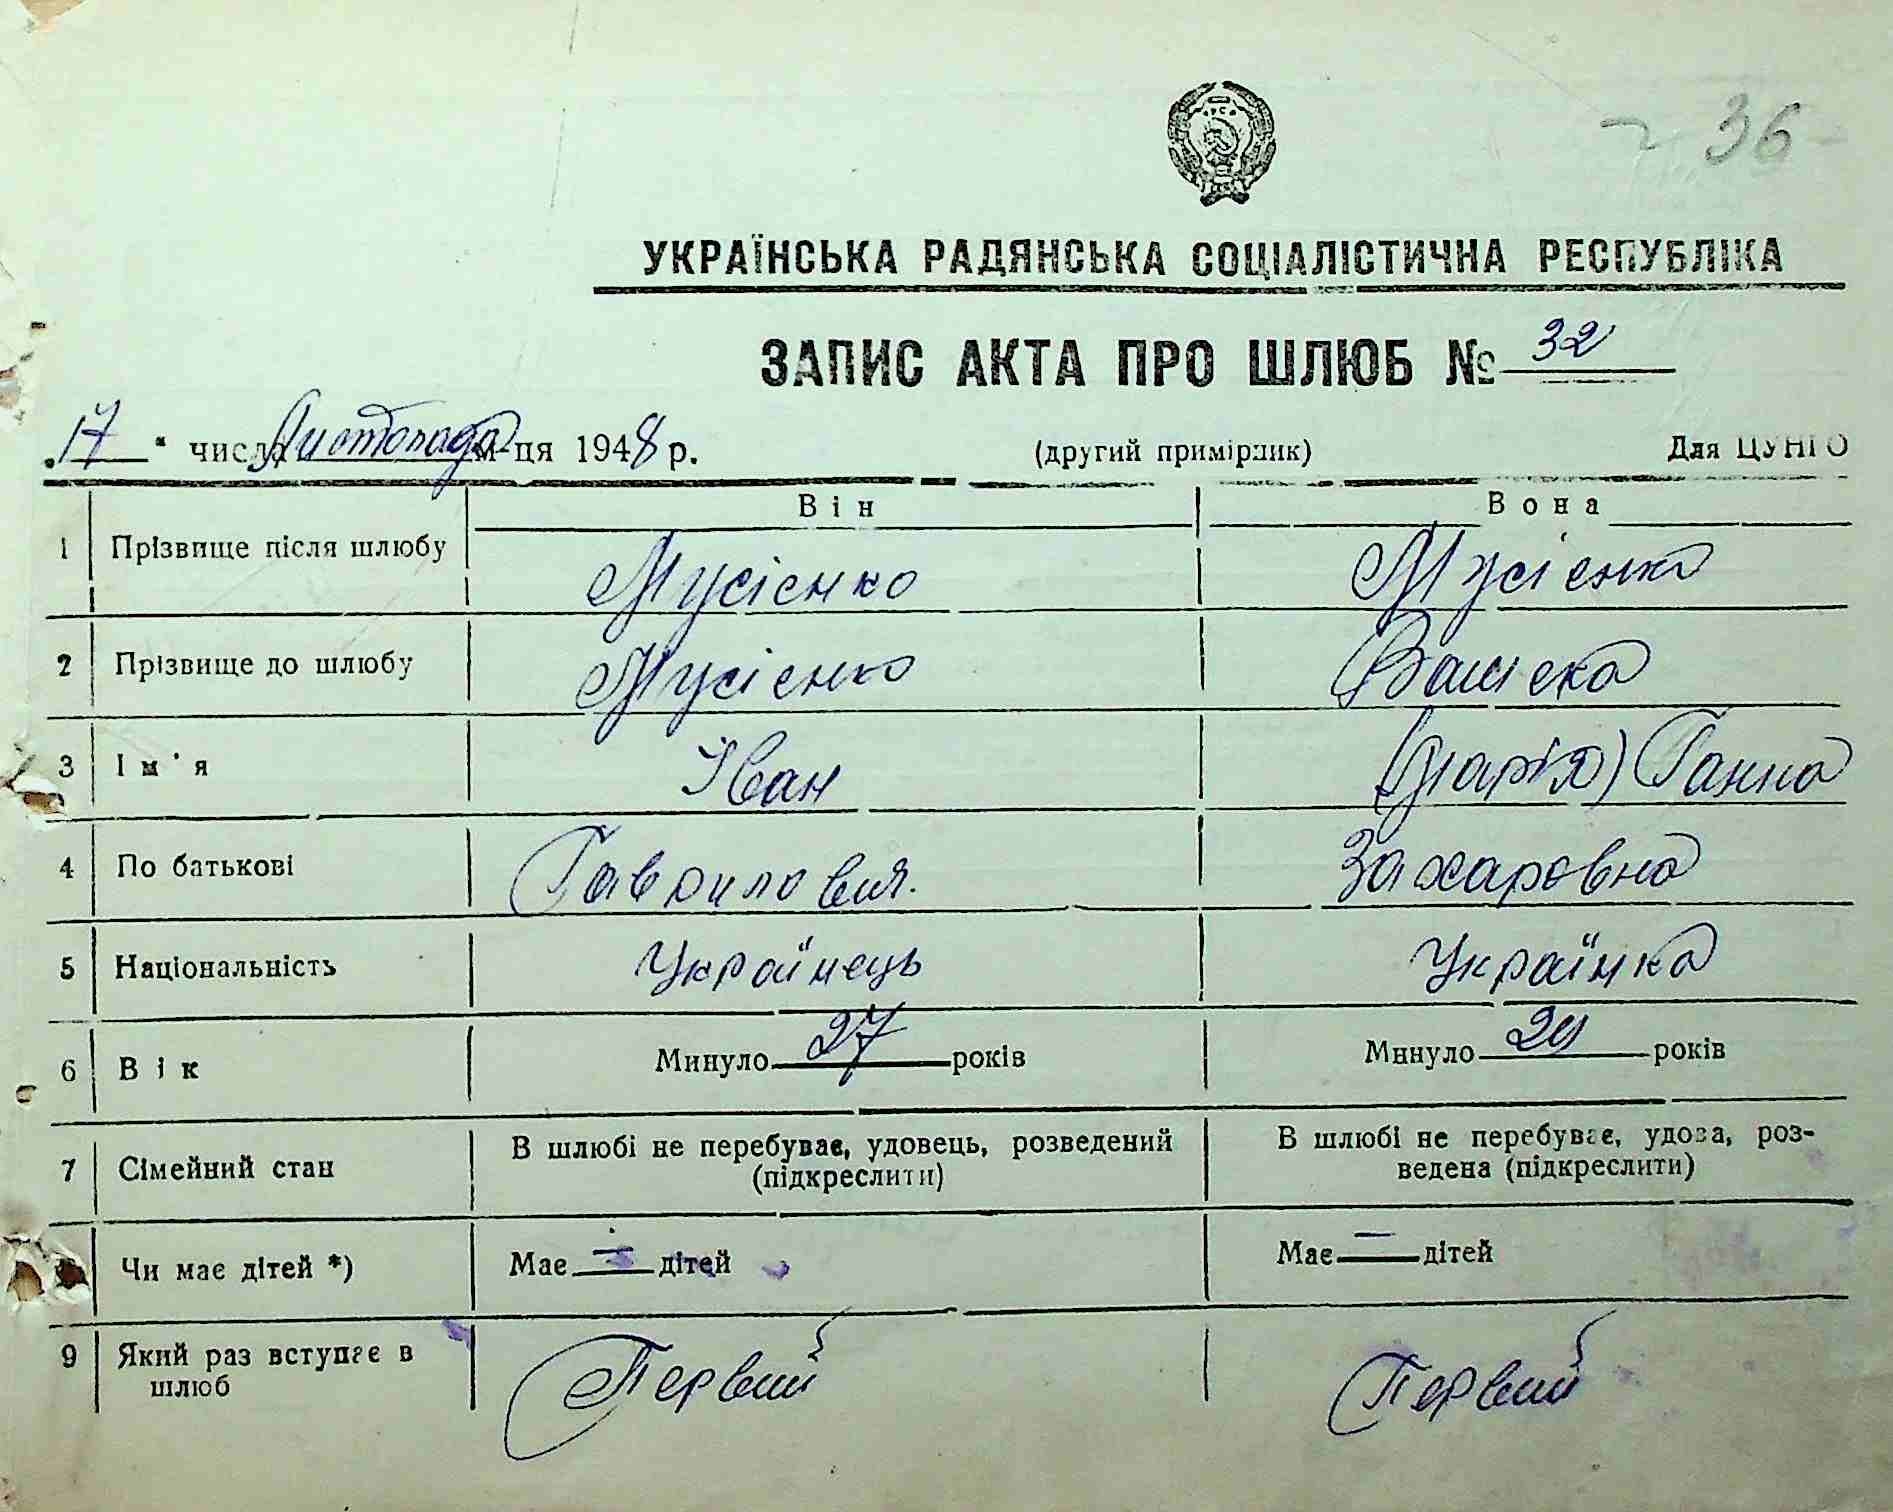 36
УКРАЇНСЬКА РАДЯНСЬКА СОЦІАЛІСТИЧНА РЕСПУБЛІКА
ЗАПИС АКТА ПРО ШЛЮБ № 32
„17“ числа Листопада м-ця 1948 р. (другий примірник) Для ЦУНГО
Він Вона
1 Прізвище після шлюбу Мусієнко Мусієнко
2 Прізвище до шлюбу Мусієнко
3 Ім'я Іван (Марія) Ганна
4 По батькові Гаврилович Захаровна
5 Національність Українець Українка
6 Вік Минуло 27 років Минуло років
7 Сімейний стан В шлюбі не перебуває, удовець, розведений (підкреслити) В шлюбі не перебуває, удова, роз-
ведена (підкреслити)
Чи має дітей *) Має — дітей Має — дітей
9 Який раз вступає в шлюб Первий Первий